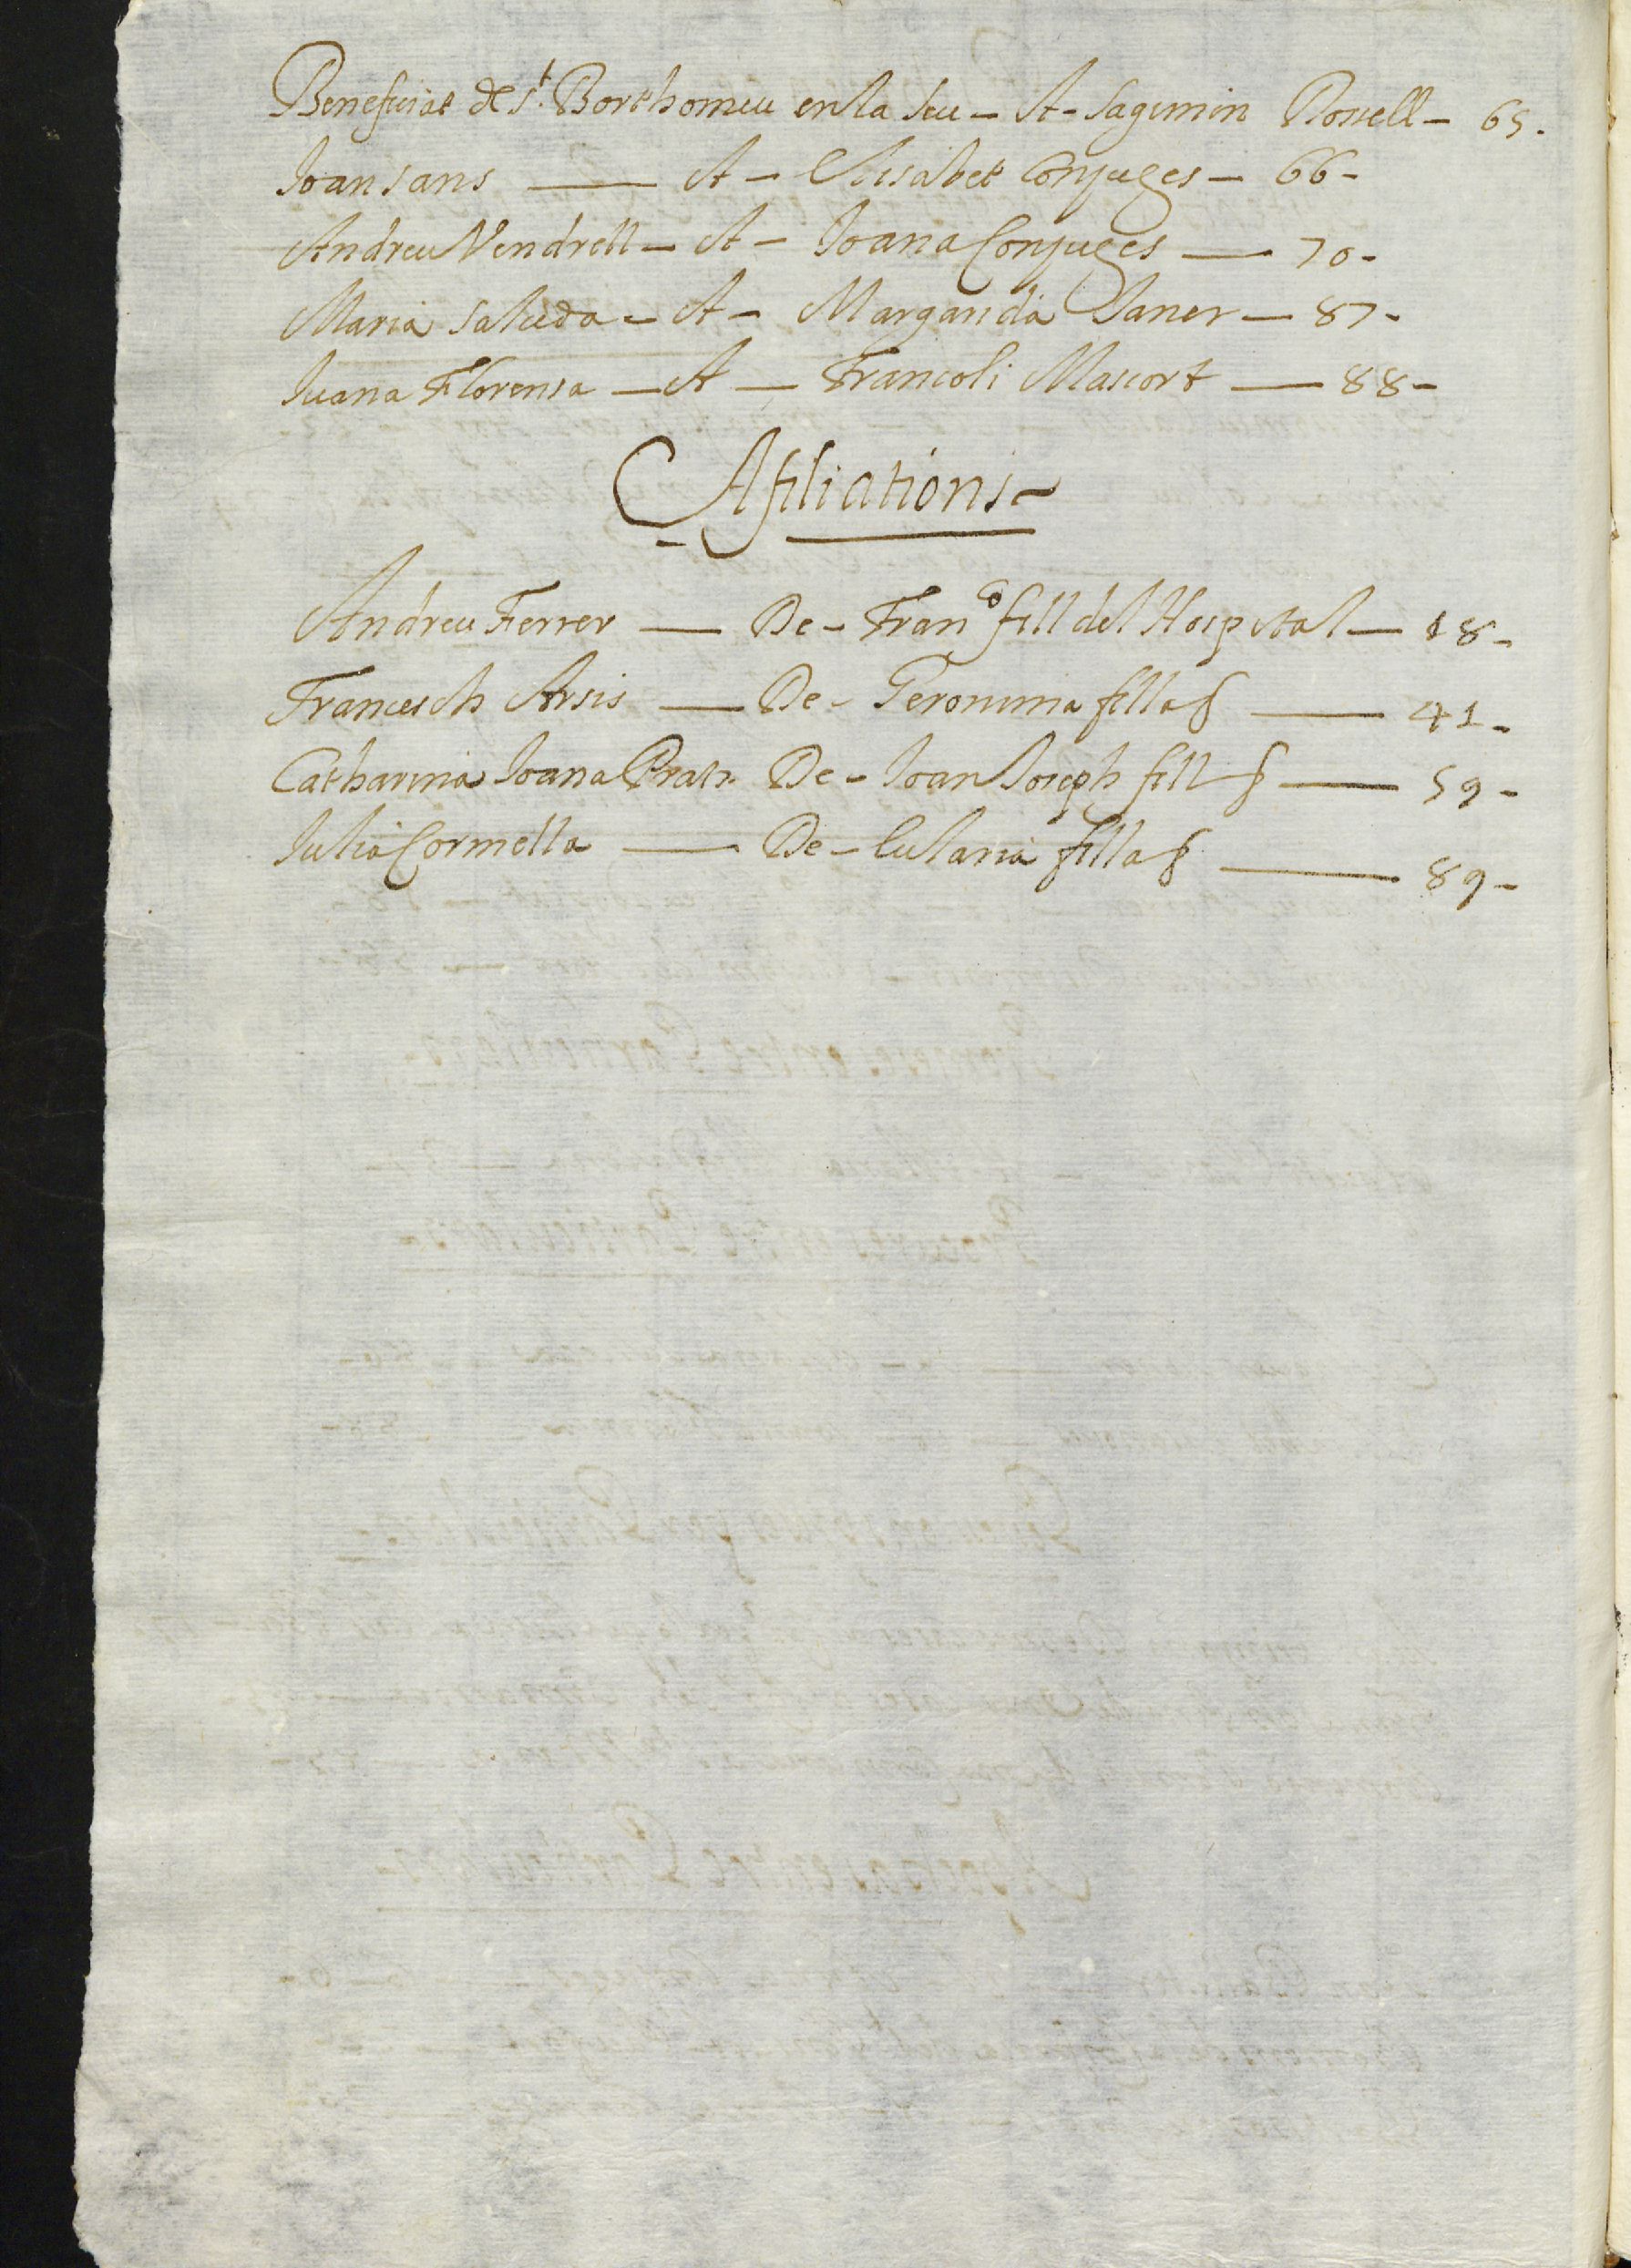 Beneficiat de st. Borthomeu en la seu - A - Sagimin Rossell - 65.
Joan sans — A - Elisabet Conjuges - 66 -
Andreu Vendrell - A - Joana Conjuges — 70 -
Maria Saluda - A - Margarida Janer - 87 -
Juana Florensa - A — Francoli Mascort — 88 -
Afiliations -
Andreu Ferrer — De - Franco fill del Hospital — 18 -
Francesch Arsis — De - Geronima filla — 41 -
Catharina Joana Prats De - Joan Joseph fill — 59 -
Julia Cormella — De - Eularia filla — 89 -